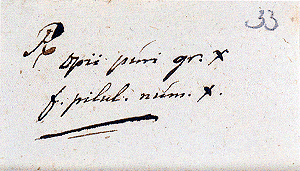 33
℞ opii puri gr. x
f. pilul. num. x.